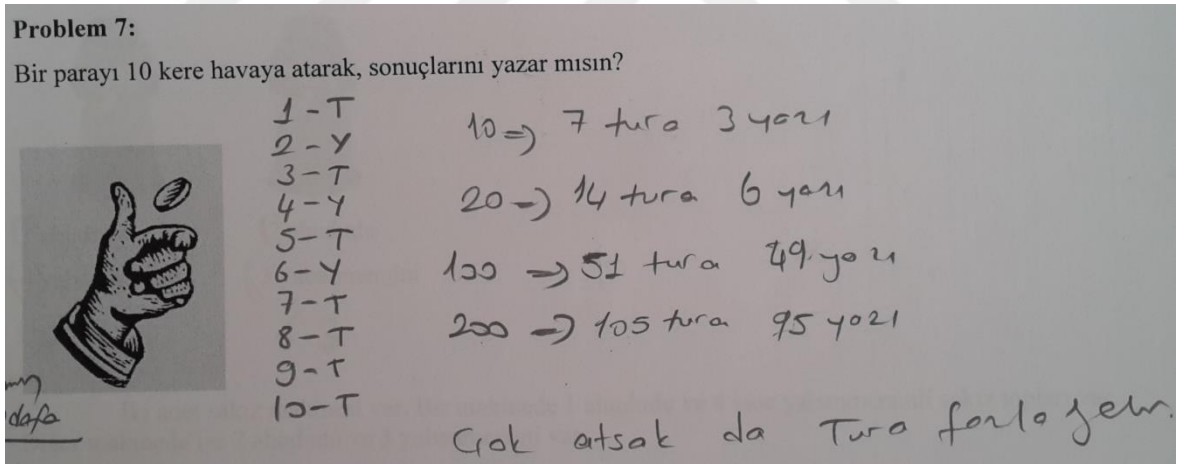 Problem 7:
Bir parayı 10 kere havaya atarak, sonuçlarını yazar mısın?
1-T
2-Y
3-T
4-Y
5-T
6-Y
7-T
8-T
9-T
10-T
10 => 7 tura 3 yazı
20 => 14 tura 6 yazı
100 => 51 tura 49 yazı
200 => 105 tura 95 yazı
Çok atsak da Tura fazla gelir.
dafa